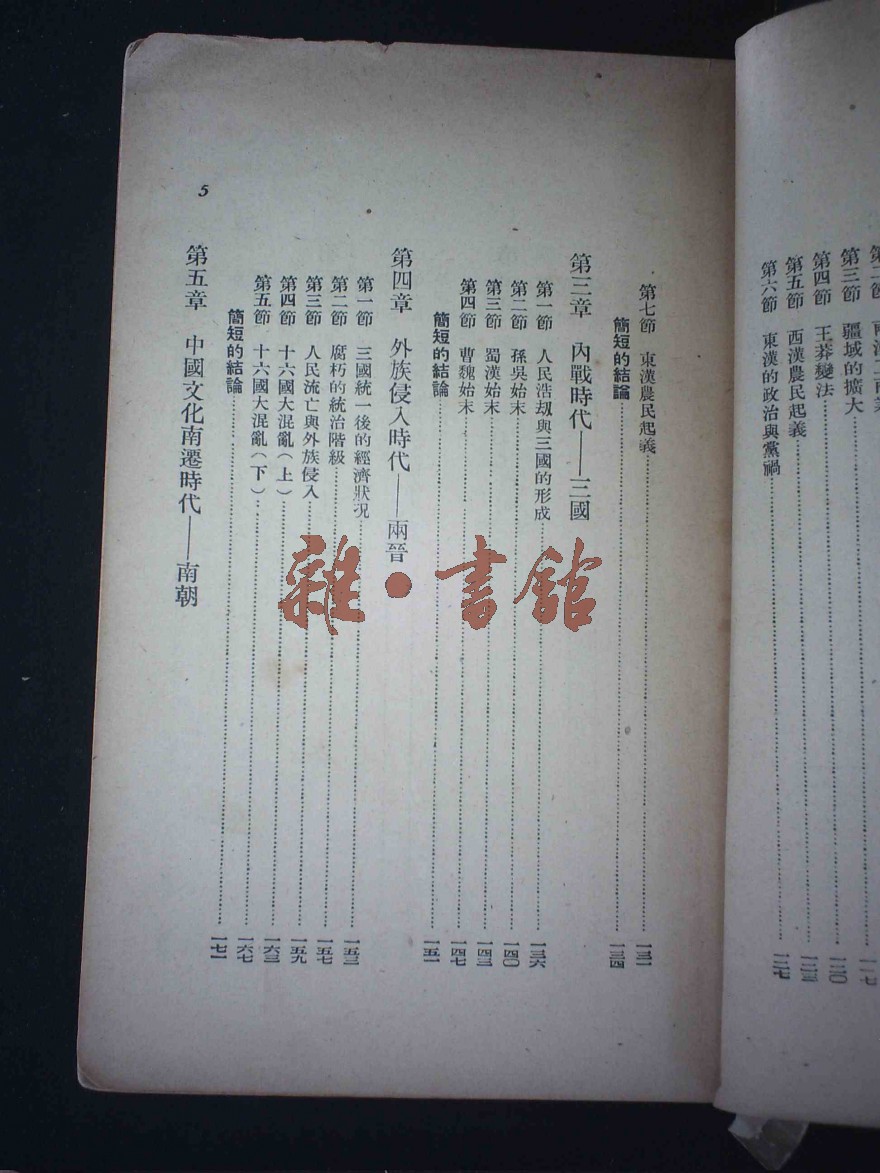 第三節 疆域的擴大……一一七
第四節 王莽變法……一二〇
第五節 西漢農民起義……一二三
第六節 東漢的政治與黨禍……一二七
第七節 東漢農民起義……一三一
簡短的結論……一三四
第三章 內戰時代——三國
第一節 人民浩刼與三國的形成……一三六
第二節 孫吳始末……一四〇
第三節 蜀漢始末……一四三
第四節 曹魏始末……一四七
簡短的結論……一五一
第四章 外族侵入時代——兩晉
第一節 三國統一後的經濟狀況……一五三
第二節 腐朽的統治階級……一五七
第三節 人民流亡與外族侵入……一五九
第四節 十六國大混亂(上)……一六三
第五節 十六國大混亂(下)……一六七
簡短的結論……一七一
第五章 中國文化南遷時代——南朝
5
雜·書館